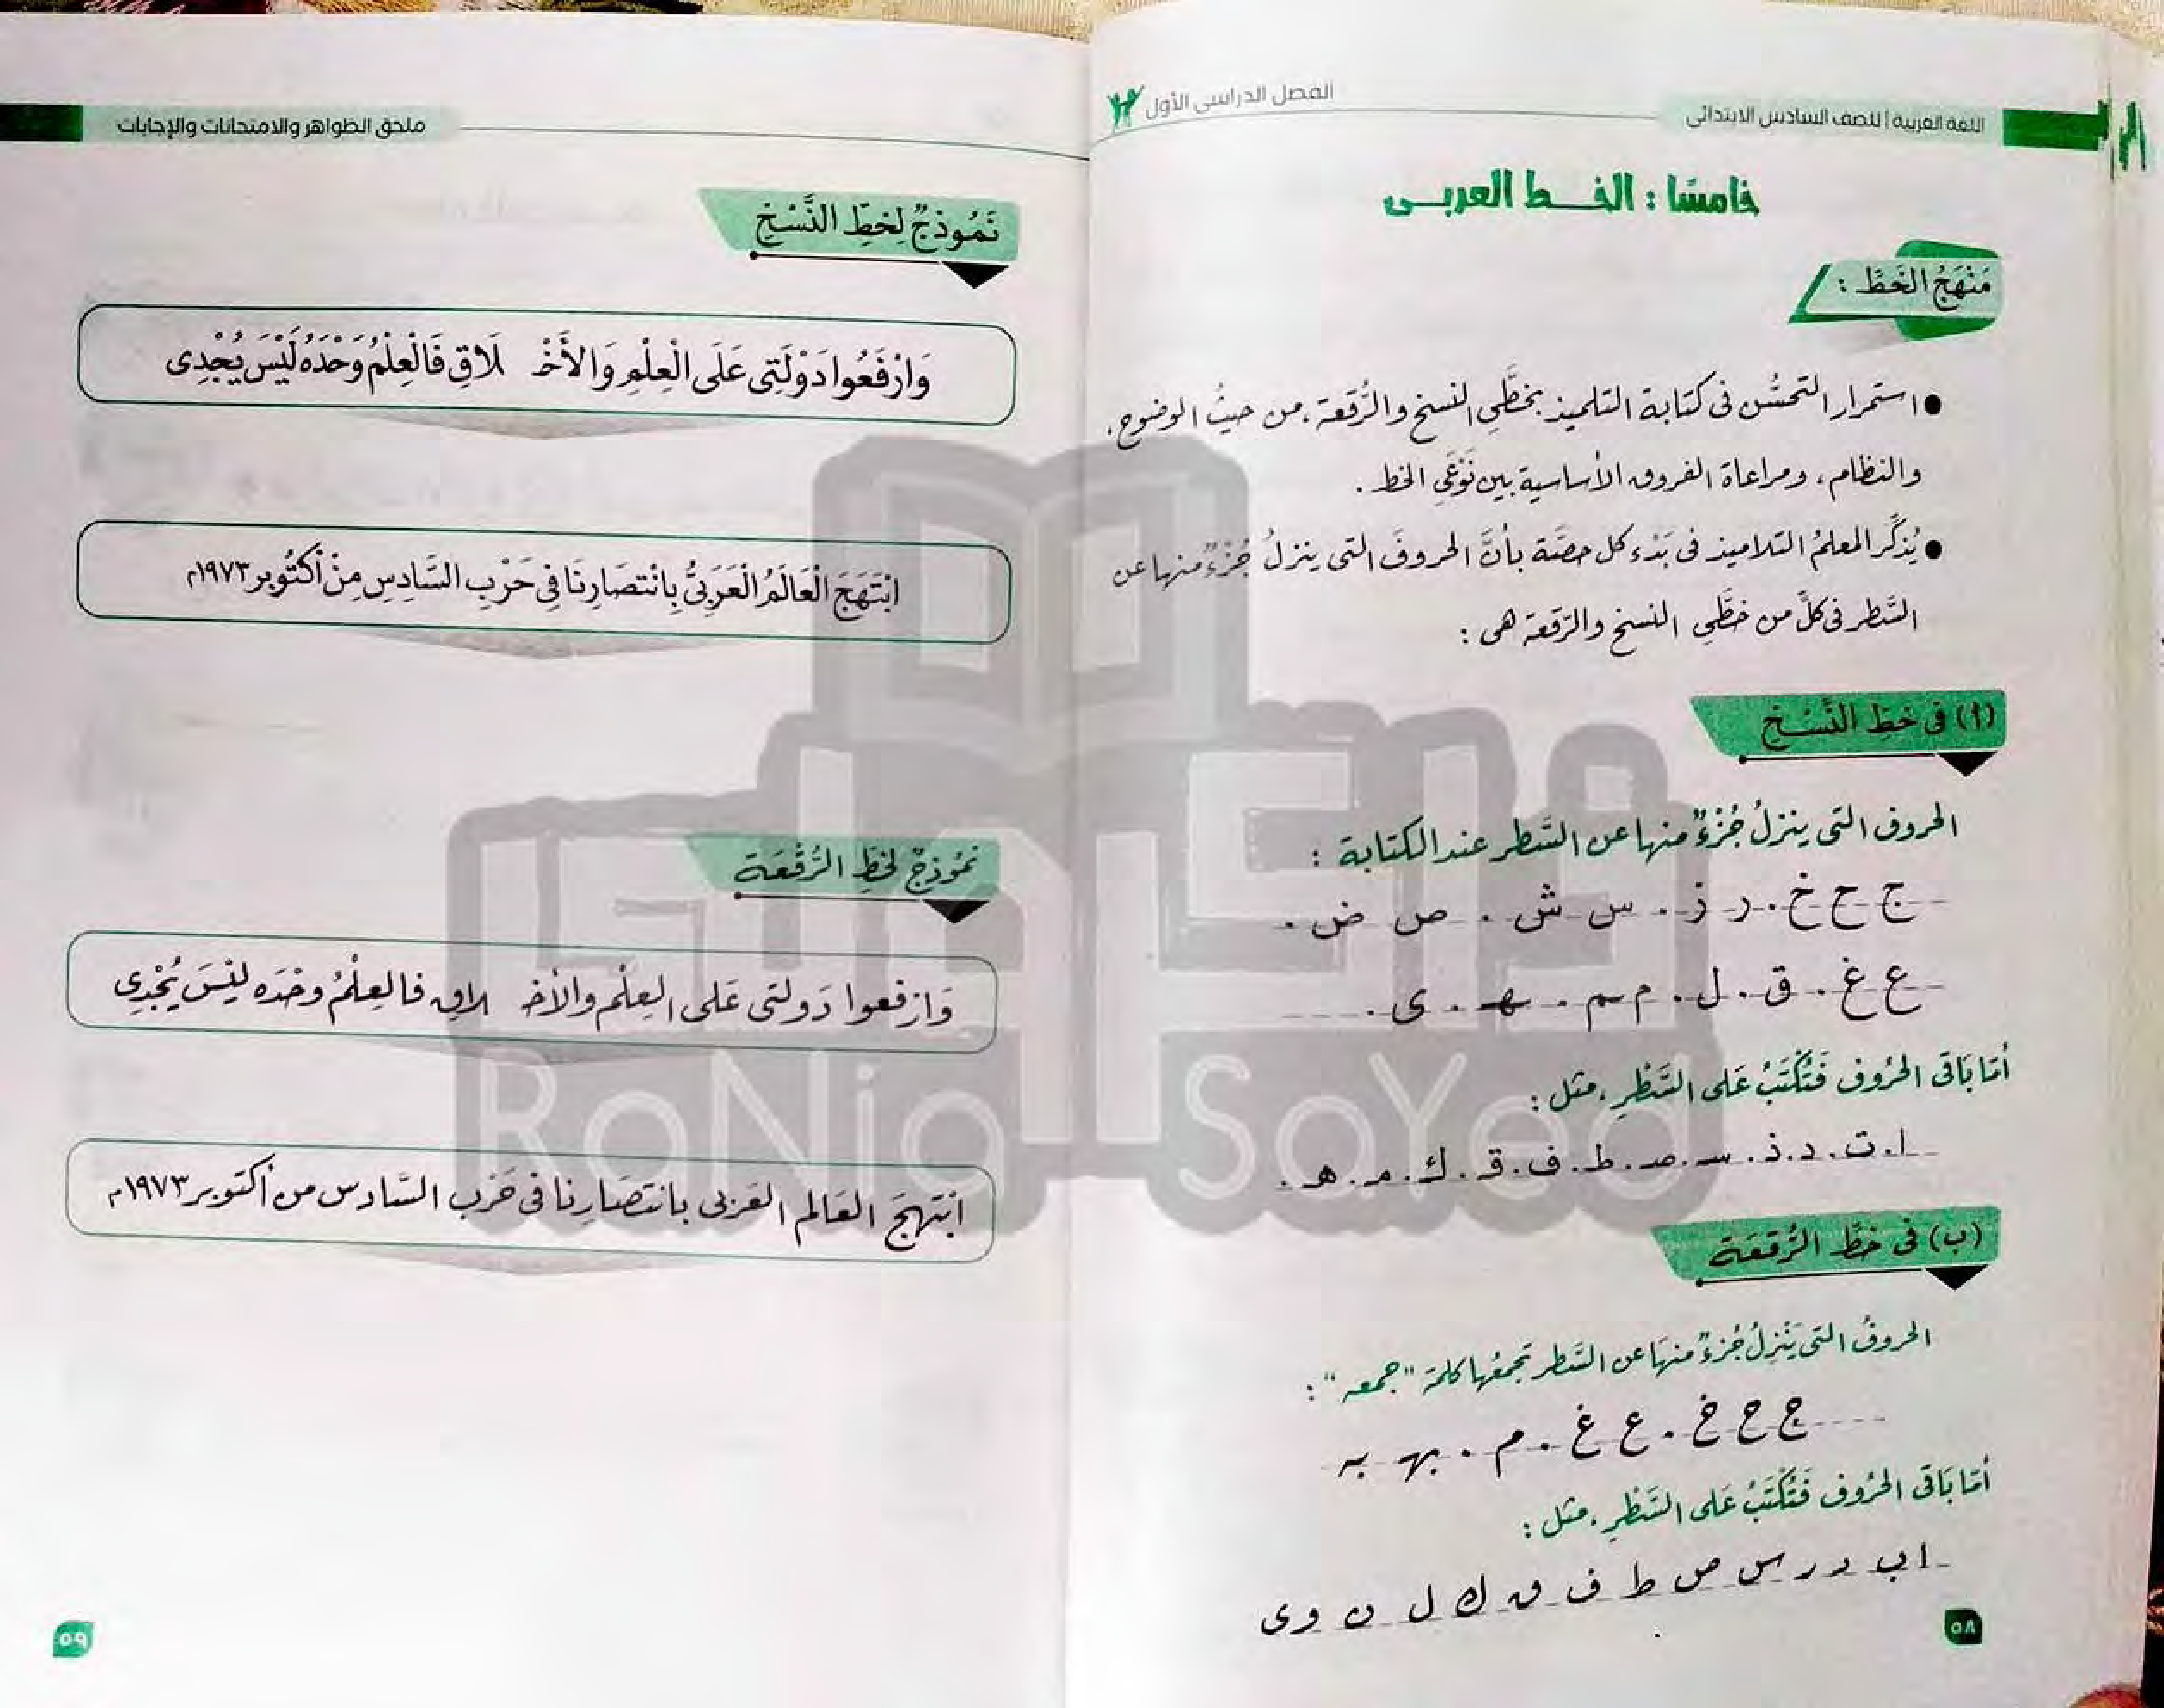 اللغة العربية | للصف السادس الابتدائى
الفصل الدراسى الأول
خامسًا : الخط العربى
مَنْهَجُ الخَطِّ :
● استمرار التحسُّن فى كتابة التلميذ بخطَّىِ النسخ والرُّقعة، من حيثُ الوضوح،
والنظام، ومراعاة الفروق الأساسية بين نَوْعَىِ الخط .
● يُذكِّر المعلمُ التلاميذ فى بَدْء كل حصَّة بأنَّ الحروفَ التى ينزلُ جُزْءٌ منها عن
السَّطر فى كلٍّ من خطَّىِ النسخ والرّقعة هى :
(أ) فى خط النَّسْخِ
الحروف التى ينزلُ جُزْءٌ منها عن السَّطر عند الكتابة :
ج ح خ . ر ز . س ش . ص ض .
ع غ . ق . ل . م ـم . ـهـ . ى .
أمّا بَاقى الحُروف فَتُكْتَبُ عَلى السَّطْرِ ، مثل :
ا . ت . د . ذ . سـ . صـ . ط . ف . قـ . ك . مـ . هـ .
(ب) فى خطِّ الرُّقعَة
الحروفُ التى يَنْزِلُ جُزءٌ منهَا عن السَّطر تجمعُها كلمَة "جمعه" :
ج ح خ . ع غ . م . ـهـ ـه
أمّا بَاقى الحُروف فَتُكْتَبُ عَلى السَّطْرِ ، مثل :
ا ب د ر س ص ط ف ق ك ل ن و ى
٥٨
ملحق الظواهر والامتحانات والإجابات
نَمُوذجٌ لِخطِّ النَّسْخِ
وَارْفَعُوا دَوْلَتِى عَلَى الْعِلْمِ وَالأَخْـ ـلَاقِ فَالْعِلْمُ وَحْدَهُ لَيْسَ يُجْدِى
ابْتَهَجَ الْعَالَمُ الْعَرَبِىُّ بِانْتصَارِنَا فِى حَرْبِ السَّادِسِ مِنْ أُكْتُوبر ١٩٧٣م
نمُوذجٌ لخطِّ الرُّقْعَة
وَارْفعوا دَولتى عَلى العِلْم والأخْـ ـلاق فالعلْمُ وحْدَه ليْسَ يُجْدِى
ابْتهجَ العَالم العَربى بانتصَارِنا فى حَرْب السَّادس من أكتوبر ١٩٧٣م
٥٩
RoNia SaYed